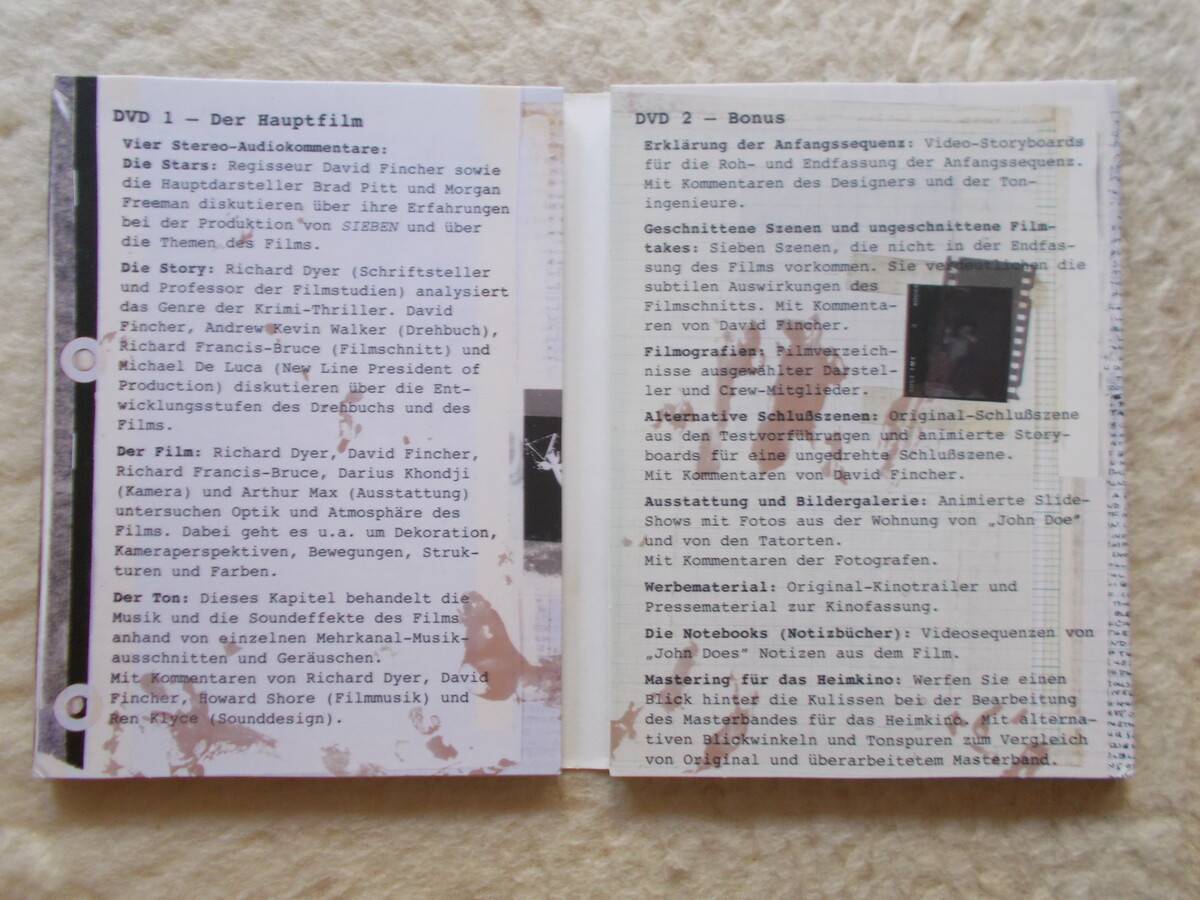 DVD 1 – Der Hauptfilm
Vier Stereo-Audiokommentare:
Die Stars: Regisseur David Fincher sowie
die Hauptdarsteller Brad Pitt und Morgan
Freeman diskutieren über ihre Erfahrungen
bei der Produktion von SIEBEN und über
die Themen des Films.
Die Story: Richard Dyer (Schriftsteller
und Professor der Filmstudien) analysiert
das Genre der Krimi-Thriller. David
Fincher, Andrew Kevin Walker (Drehbuch),
Richard Francis-Bruce (Filmschnitt) und
Michael De Luca (New Line President of
Production) diskutieren über die Ent-
wicklungsstufen des Drehbuchs und des
Films.
Der Film: Richard Dyer, David Fincher,
Richard Francis-Bruce, Darius Khondji
(Kamera) und Arthur Max (Ausstattung)
untersuchen Optik und Atmosphäre des
Films. Dabei geht es u.a. um Dekoration,
Kameraperspektiven, Bewegungen, Struk-
turen und Farben.
Der Ton: Dieses Kapitel behandelt die
Musik und die Soundeffekte des Films
anhand von einzelnen Mehrkanal-Musik-
ausschnitten und Geräuschen.
Mit Kommentaren von Richard Dyer, David
Fincher, Howard Shore (Filmmusik) und
Ren Klyce (Sounddesign).
DVD 2 – Bonus
Erklärung der Anfangssequenz: Video-Storyboards
für die Roh- und Endfassung der Anfangssequenz.
Mit Kommentaren des Designers und der Ton-
ingenieure.
Geschnittene Szenen und ungeschnittene Film-
takes: Sieben Szenen, die nicht in der Endfas-
sung des Films vorkommen. Sie verdeutlichen die
subtilen Auswirkungen des
Filmschnitts. Mit Kommenta-
ren von David Fincher.
Filmografien: Filmverzeich-
nisse ausgewählter Darstel-
ler und Crew-Mitglieder.
Alternative Schlußszenen: Original-Schlußszene
aus den Testvorführungen und animierte Story-
boards für eine ungedrehte Schlußszene.
Mit Kommentaren von David Fincher.
Ausstattung und Bildergalerie: Animierte Slide-
Shows mit Fotos aus der Wohnung von „John Doe"
und von den Tatorten.
Mit Kommentaren der Fotografen.
Werbematerial: Original-Kinotrailer und
Pressematerial zur Kinofassung.
Die Notebooks (Notizbücher): Videosequenzen von
„John Does" Notizen aus dem Film.
Mastering für das Heimkino: Werfen Sie einen
Blick hinter die Kulissen bei der Bearbeitung
des Masterbandes für das Heimkino. Mit alterna-
tiven Blickwinkeln und Tonspuren zum Vergleich
von Original und überarbeitetem Masterband.